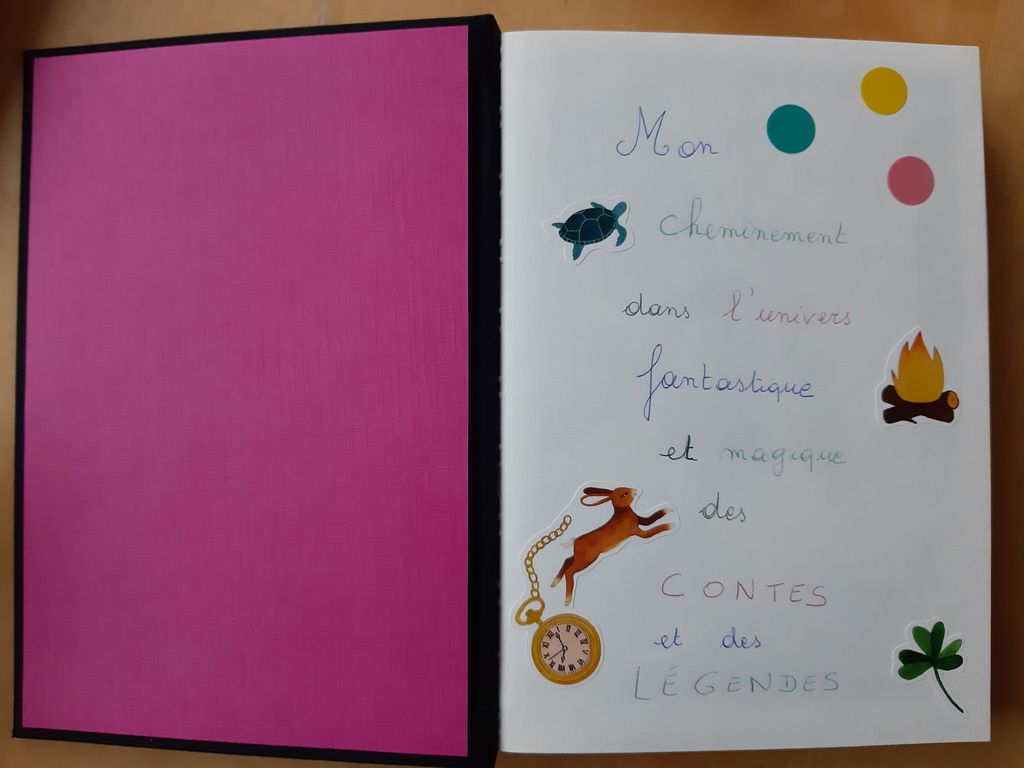 Mon
cheminement
dans l'univers
fantastique
et magique
des
CONTES
et des
LÉGENDES